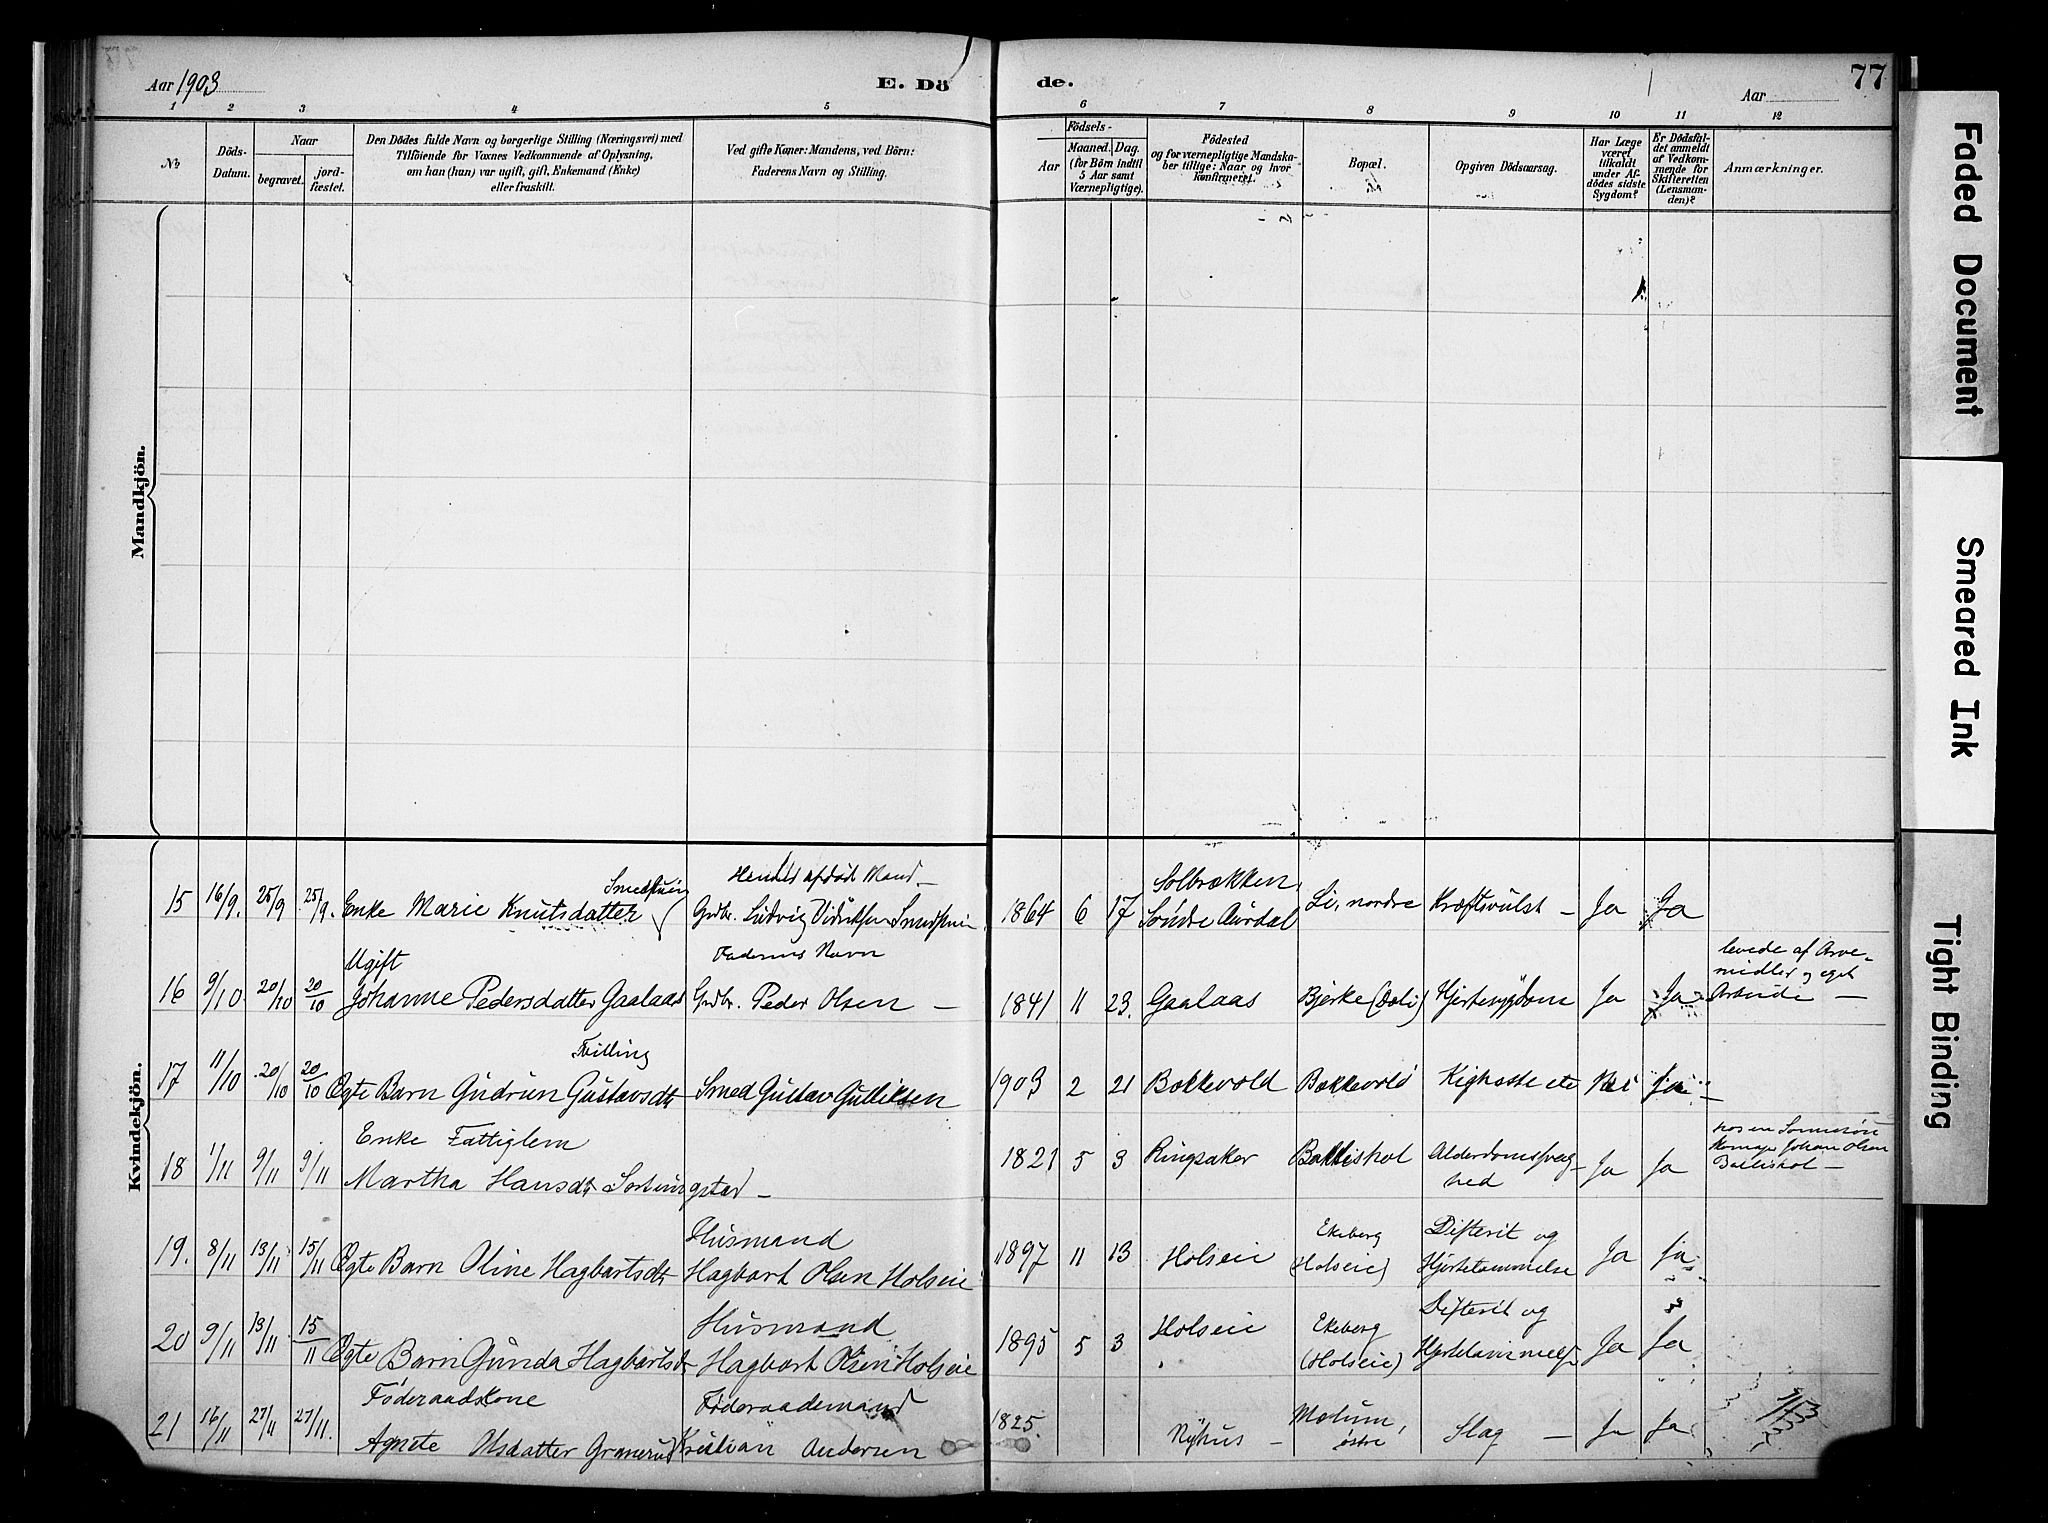 Aar 1903
E. Dö
de.
Aar
77
1 2 3 4 5 6 7 8 9 10 11 12
No
Döds-
Datum.
Naar
begravet.
jord-
fæstet.
Den Dödes fulde Navn og borgerlige Stilling (Næringsvei) med
Tilföiende for Voxnes Vedkommende af Oplysning,
om han (hun) var ugift, gift, Enkemand (Enke)
eller fraskilt.
Ved gifte Koner: Mandens, ved Börn:
Faderens Navn og Stilling.
Födsels-
Aar
Maaned. Dag.
(for Börn indtil
5 Aar samt
Værnepligtige).
Födested
og for værnepligtige Mandska-
ber tillige: Naar og hvor
konfirmeret.
Bopæl.
Opgiven Dödsaarsag.
Har Læge
været
tilkaldt
under Af-
dödes sidste
Sygdom?
Er Dödsfal-
det anmeldt
af Vedkom-
mende for
Skifteretten
(Lensman-
den)?
Anmærkninger.
Mandkjön.
Kvindekjön.
15 16/9. 25/9 25/9. Enke Marie Knutsdatter
Afdød Mand
Grdbr. Ludvig
1864 6 17 Solbrækken, Søndre Aurdal
Li, nordre Kræftsvulst – Ja Ja
16 9/10. 20/10 20/10 Ugift
Johanne Pedersdatter Gaalaas
Faderens Navn
Grdbr. Peder Olsen –
1841 11 23. Gaalaas Bjerke Hjertesygdom Ja Ja
levede af Arve-
midler og eget
Arbeide –
17 11/10 20/10 20/10 Tvilling
Ægte Barn Gudrun Gustavsdtr
Smed Gustav Gulliksen
1903 2 21 Bækkevold Bækkevold Kighoste etc Nei Ja –
18 1/11 9/11 9/11 Enke Fattiglem
Martha Hansdtr
1821 5 3 Ringsaker Ballishol Alderdomssvag-
hed Ja Ja
Johan Olsen
Ballishol –
19. 8/11 13/11 15/11 Ægte Barn Oline Hagbartsdtr
Husmand
Hagbart Olsen Holseie
1897 11 13 Holseie Ekeberg
(Holseie)
Difterit og
Hjertelammelse Ja Ja
20 9/11 13/11 15/11 Ægte Barn Gunda Hagbartsdtr
Husmand
Hagbart Olsen Holseie
1895 5 3 Holseie Ekeberg
(Holseie)
Difterit og
Hjertelammelse Ja Ja
21 16/11 27/11 27/11. Føderaadskone
Agnete Olsdatter Granerud
Føderaadsmand
Kristian Andersen
1825. Nyhus – Mælum,
østre Slag – Ja Ja
Faded Document
Smeared Ink
Tight Binding